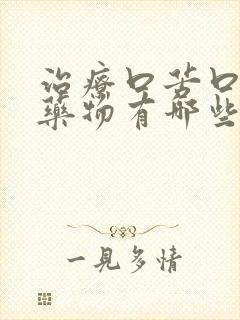 治療口苦口
藥物有哪些
一見多情